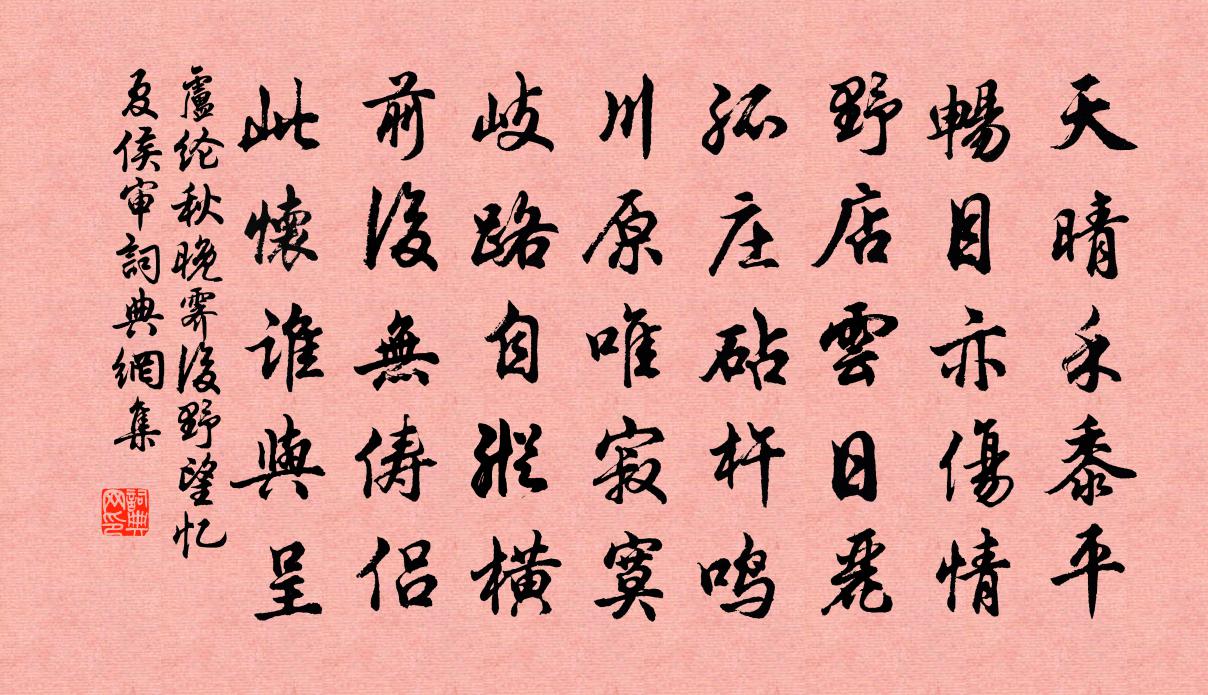 天晴禾黍平
暢目亦傷情
野店雲日麗
孤庄砧杵鸣
川原唯寂寞
岐路自縱橫
前後無俦侣
此懷誰與呈
盧纶秋晚霁後野望忆
夏侯审詞典網集
詞典
网印